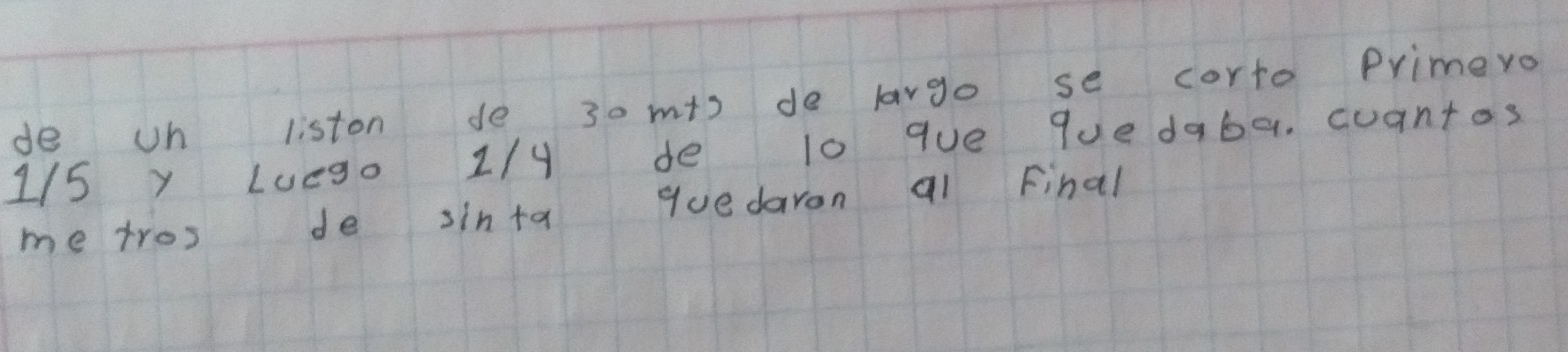 de un liston de 30 mts de largo se corto Primero
1/5 y Luego 1/4 de lo que quedaba. cuantos
metros de sinta quedaran al Final